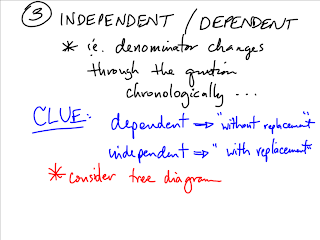 ③ INDEPENDENT / DEPENDENT
* i.e. denominator changes
through the question
chronologically ...
CLUE:
dependent ⇒ "without replacement"
independent ⇒ "with replacement"
* consider tree diagram